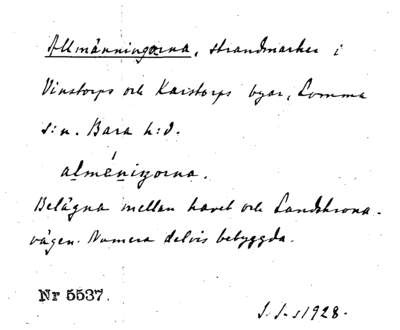 Allmänningorna, strandmarker i
Vinstorps och Karstorps byar, Lomma
s:n. Bara h:d.
alméni̯gorna.
Belägna mellan havet och Landskrona-
vägen. Numera delvis bebyggda.
Nr 5537.
S. S-s 1928.